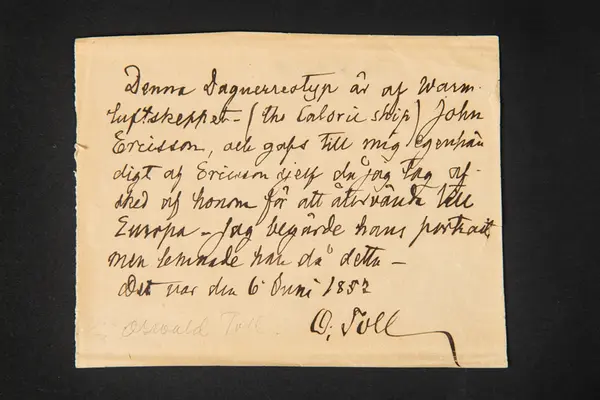 Denna Daguerreotyp är af Warm-
luftskeppet - (the Caloric ship) John
Ericsson, och gafs till mig egenhän
digt af Ericsson sjelf då jag tog af-
sked af honom för att återvända till
Europa - Jag begärde hans portrait
men lemnade han då detta -
Det var den 6 Juni 1857
Oswald Toll.
O. Toll